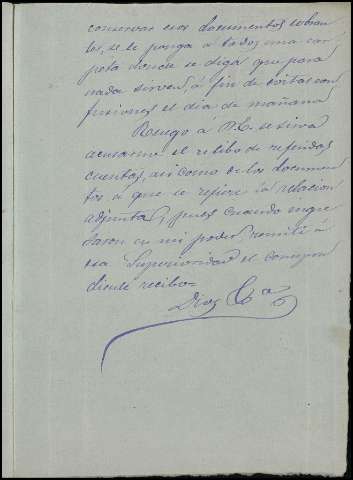 conservar esos documentos sobran-
tes, se le ponga á todos una car-
peta donde se diga que para
nada sirven, á fin de evitar con
fusiones el dia de mañana
Ruego á P.E. se sirva
acusarme el recibo de referidas
cuentas, asi como de los documen
tos á que se refiere la relacion
adjunta, pues cuando ingre
saron en mi poder, remití á
esa Superioridad el correspon
diente recibo=
Dios